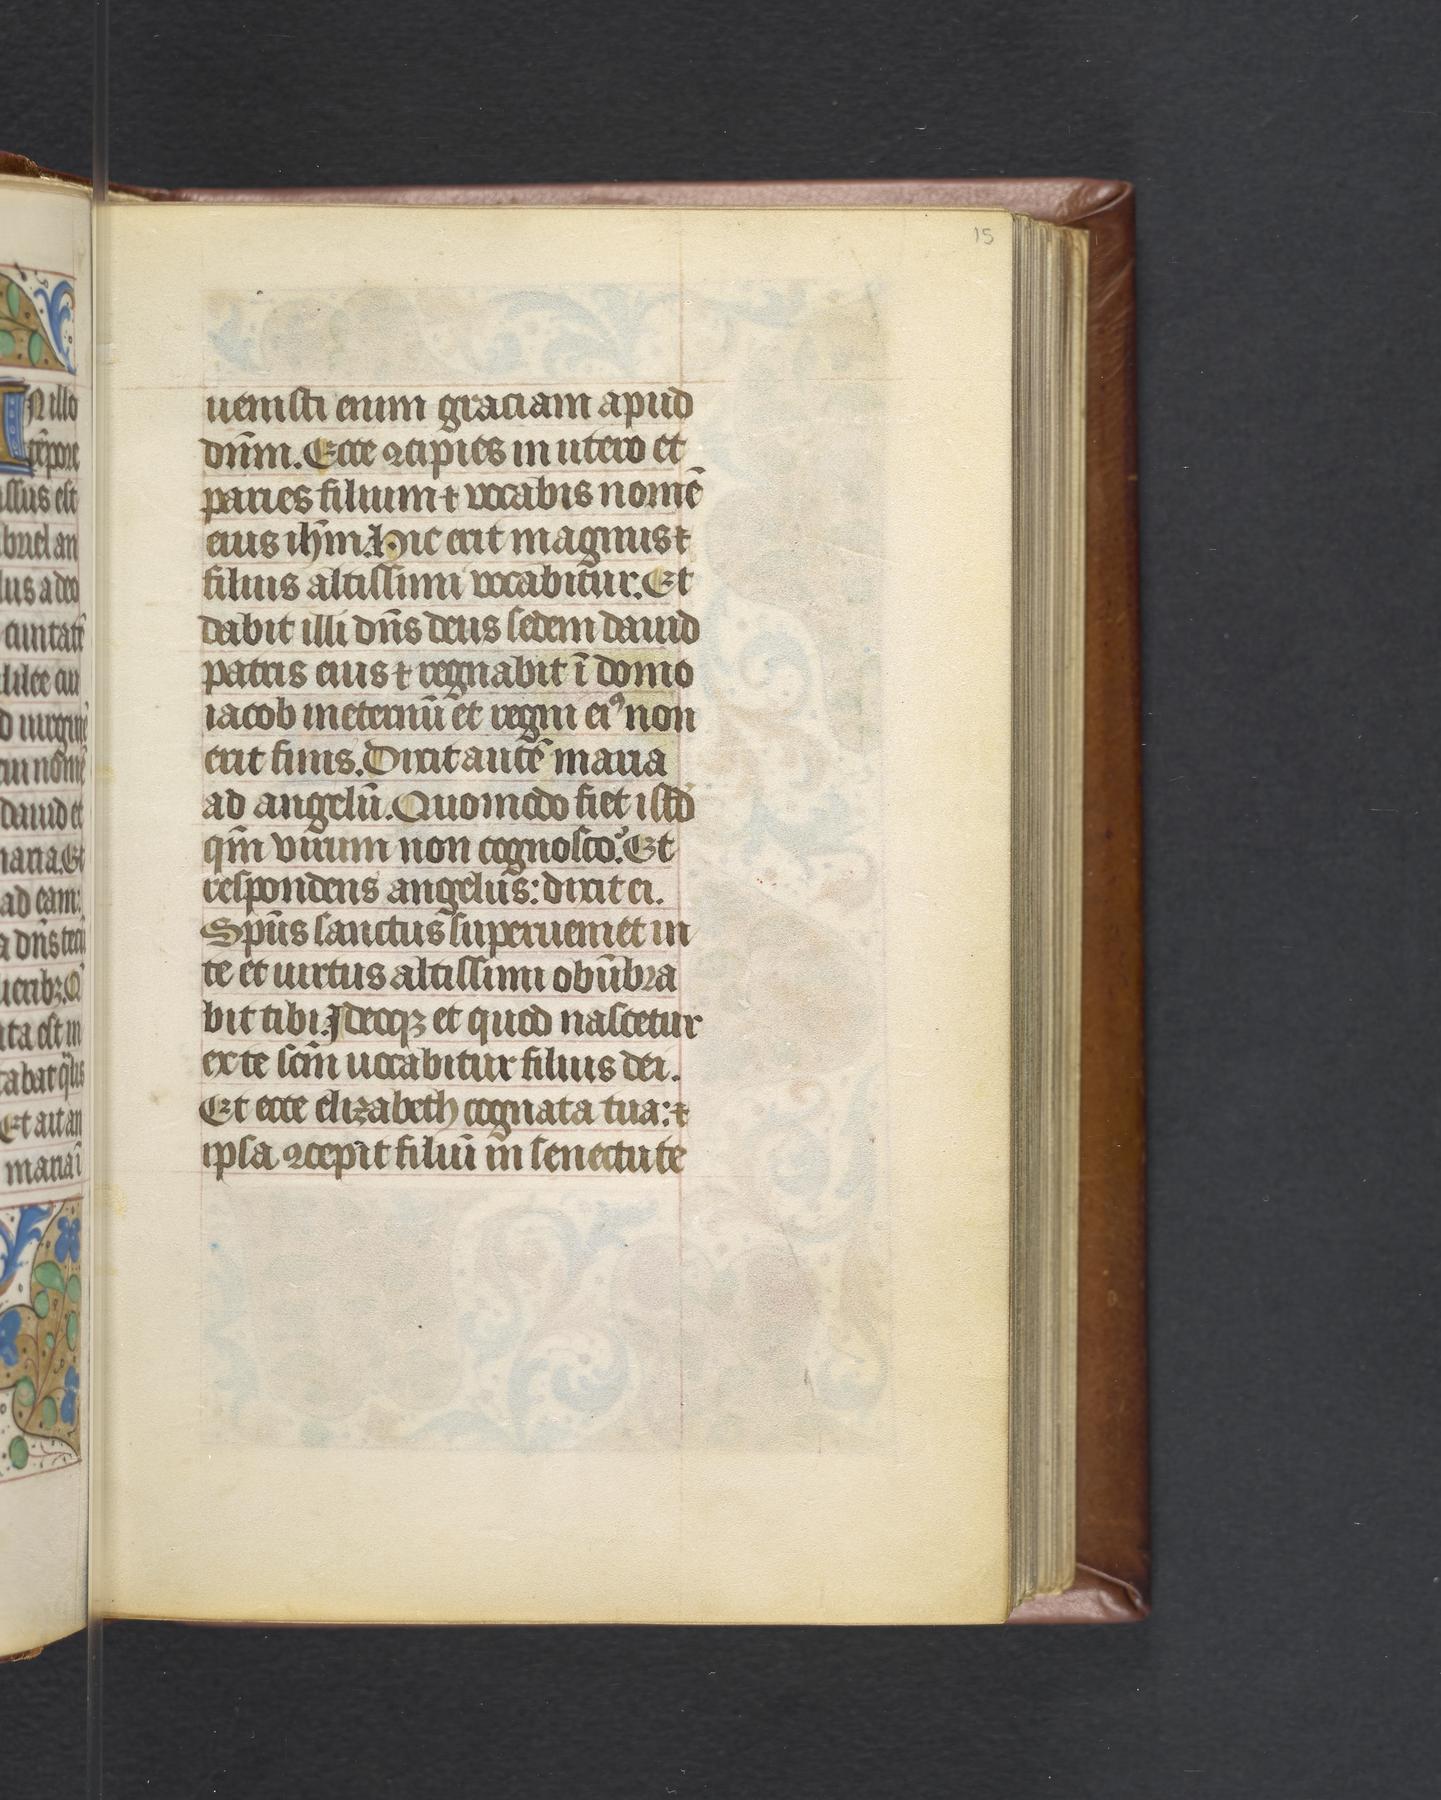 Nillo
tēpore
issus est
briel an
lus a deo
ciuitatē
lilee cui
d uirginē
cui nomē
dauid et
maria. Et
ad eam:
a dn̄s tecū
ta est in
tabat qlis
Et ait an
maria ī
15
uenisti enim graciam apud
dn̄m. Ecce ꝯcipies in utero et
paries filium ⁊ vocabis nomē
eius ih̄m. Hic erit magnus ⁊
filius altissimi vocabitur. Et
dabit illi dn̄s deus sedem dauid
patris eius ⁊ regnabit ī domo
iacob in eternū et regni eiꝰ non
erit finis. Dixit autē maria
ad angelū. Quomodo fiet istd
qm̄ virum non cognosco? Et
respondens angelus: dixit ei.
Sp̄us sanctus superueniet in
te et uirtus altissimi obūbra
bit tibi. Ideoqꝫ et quod nascetur
ex te scm̄ uocabitur filius dei.
Et ecce elizabeth cognata tua: ⁊
ipsa ꝯcepit filiū in senectute